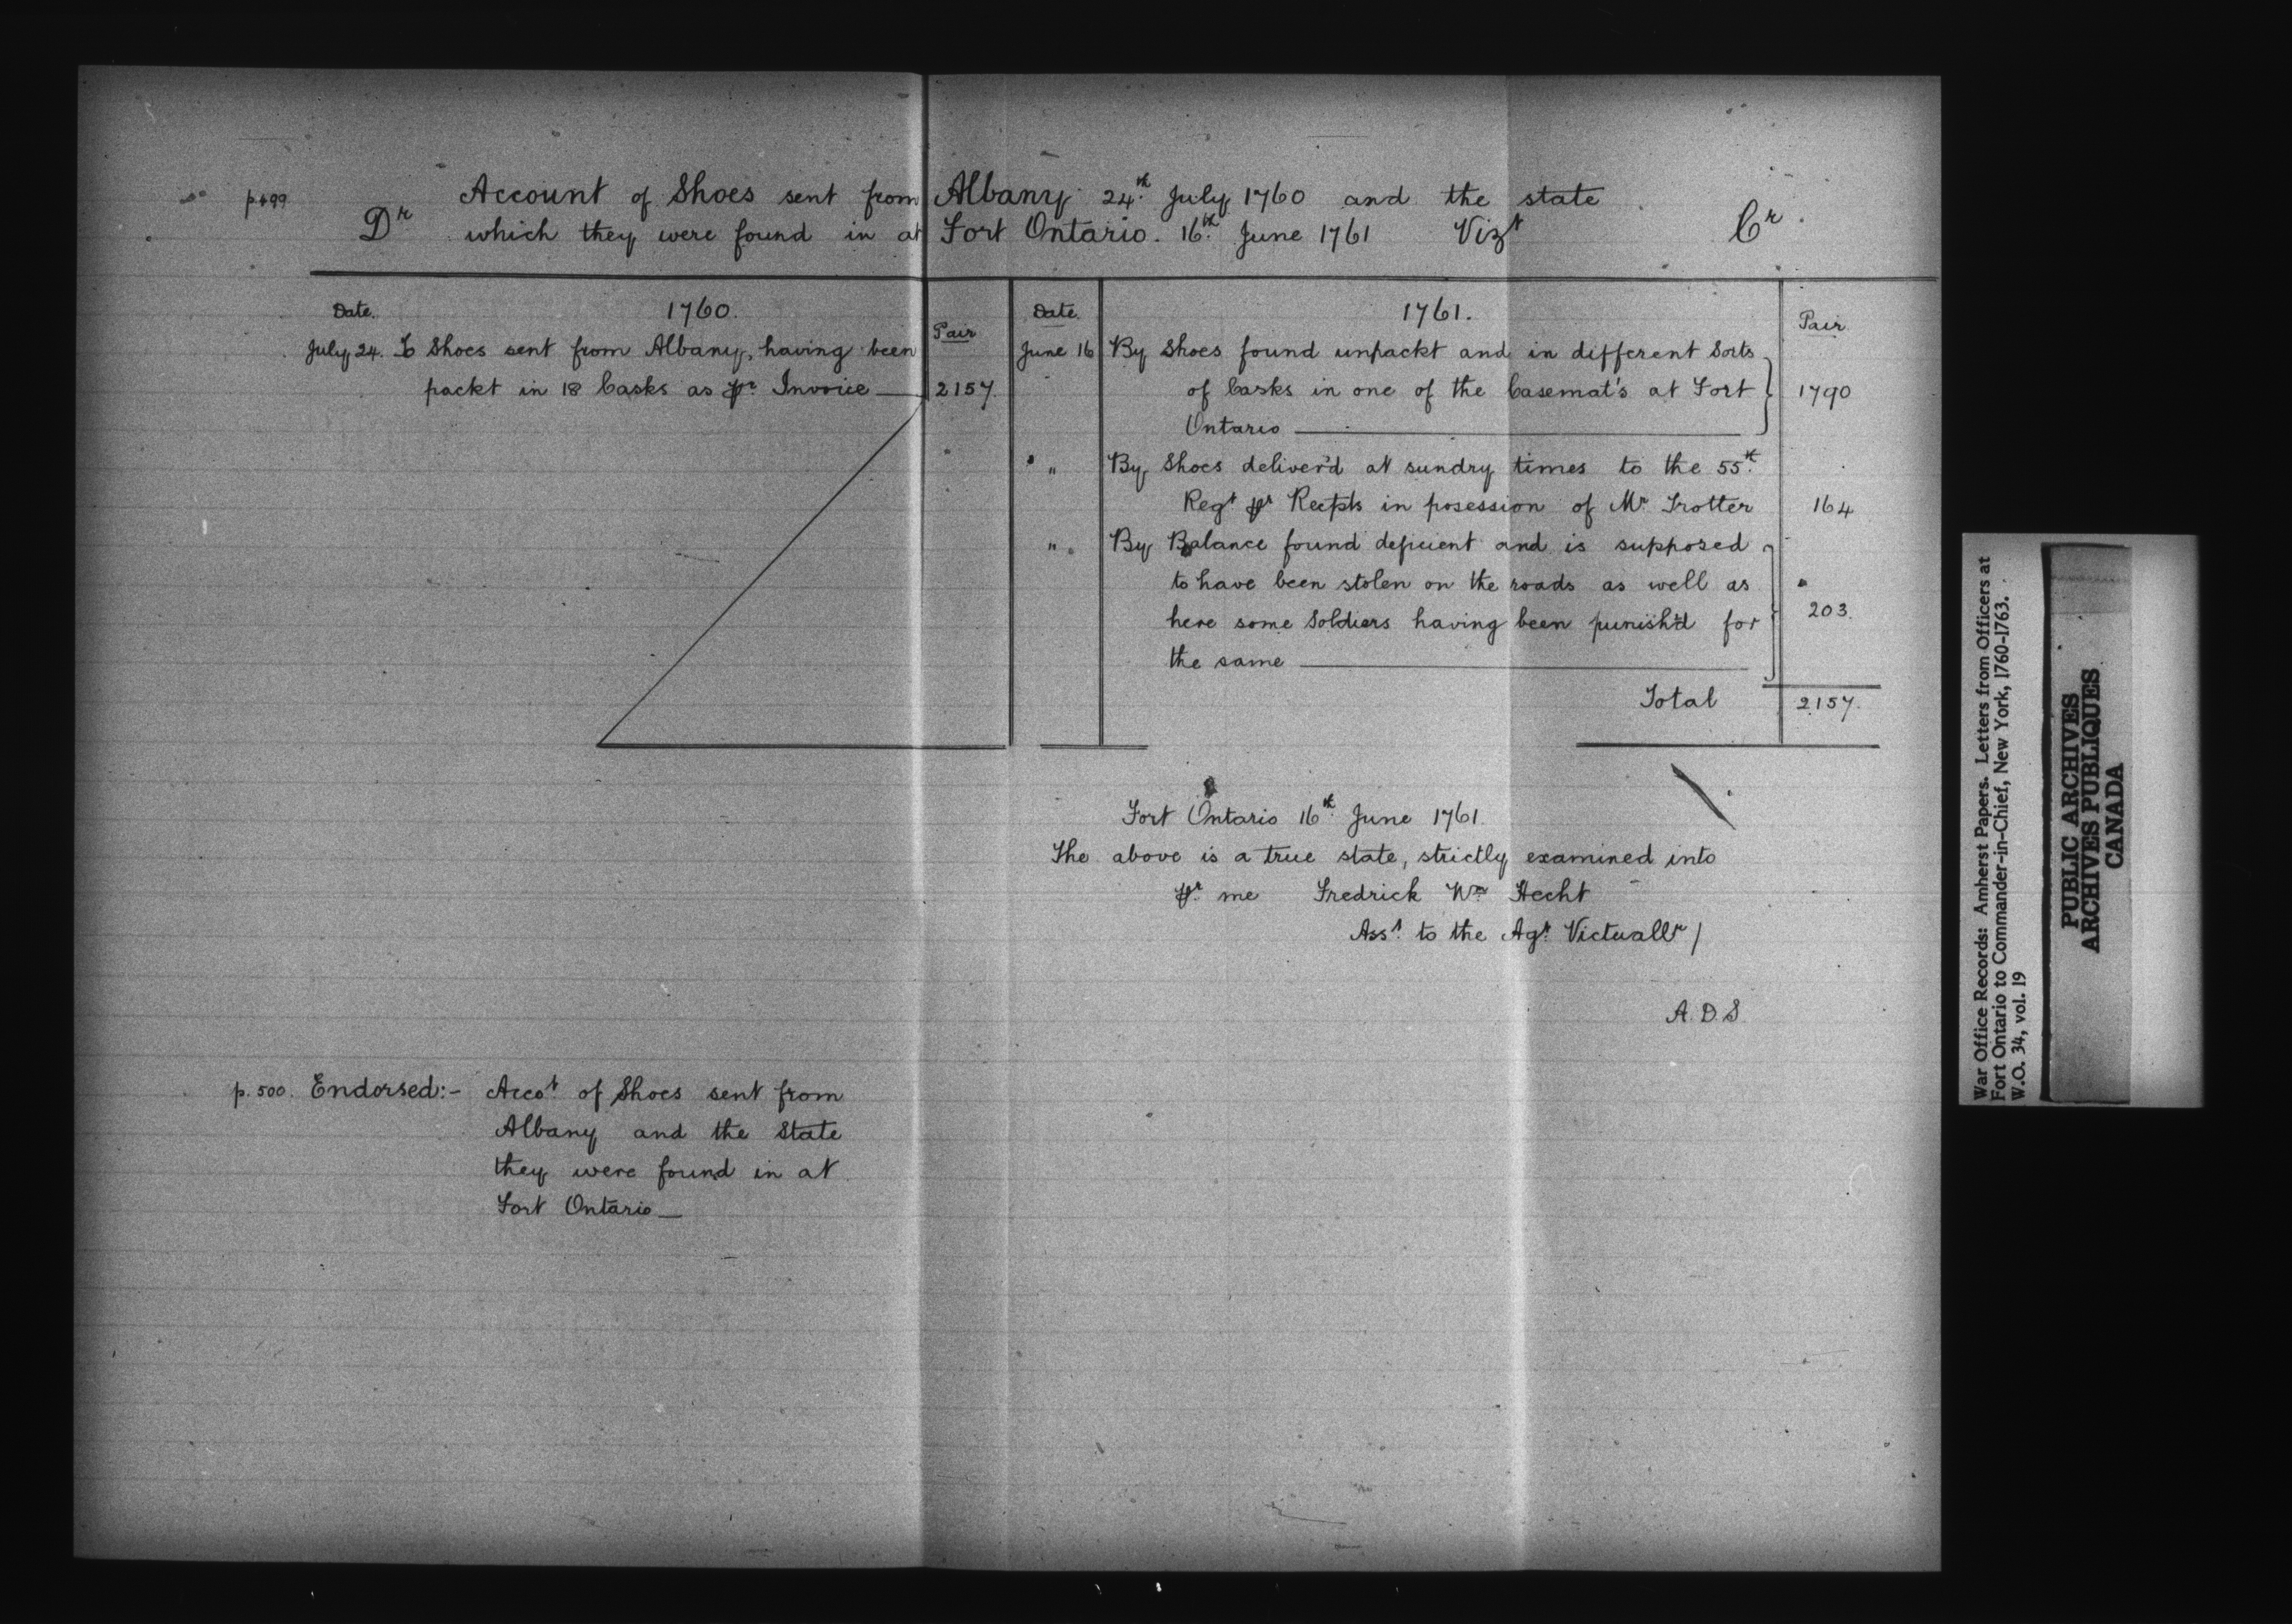 p.499
Account of Shoes sent from Albany 24th July 1760 and the state
Dr which they were found in at Fort Ontario. 16th June 1761 Vizt Cr.
Date. 1760. Pair
July 24. To Shoes sent from Albany, having been
packt in 18 Casks as pr. Invoice — 2157.
Date 1761. Pair
June 16 By Shoes found unpackt and in different Sorts
of Casks in one of the Casemat's at Fort 1790
Ontario —
" By Shoes deliver'd at sundry times to the 55th
Regt pr Recpts in posession of Mr Trotter 164
" By Balance found deficient and is supposed
to have been stolen on the roads as well as
here some Soldiers having been punish'd for 203.
the same —
Total 2157.
Fort Ontario 16th June 1761.
The above is a true state, strictly examined into
pr. me Fredrick Wm Hecht
Asst. to the Agt. Victuallr /
A.D.S.
p.500. Endorsed:- Accot of Shoes sent from
Albany and the State
they were found in at
Fort Ontario —
War Office Records: Amherst Papers. Letters from Officers at
Fort Ontario to Commander-in-Chief, New York, 1760-1763.
W.O. 34, vol. 19
PUBLIC ARCHIVES
ARCHIVES PUBLIQUES
CANADA